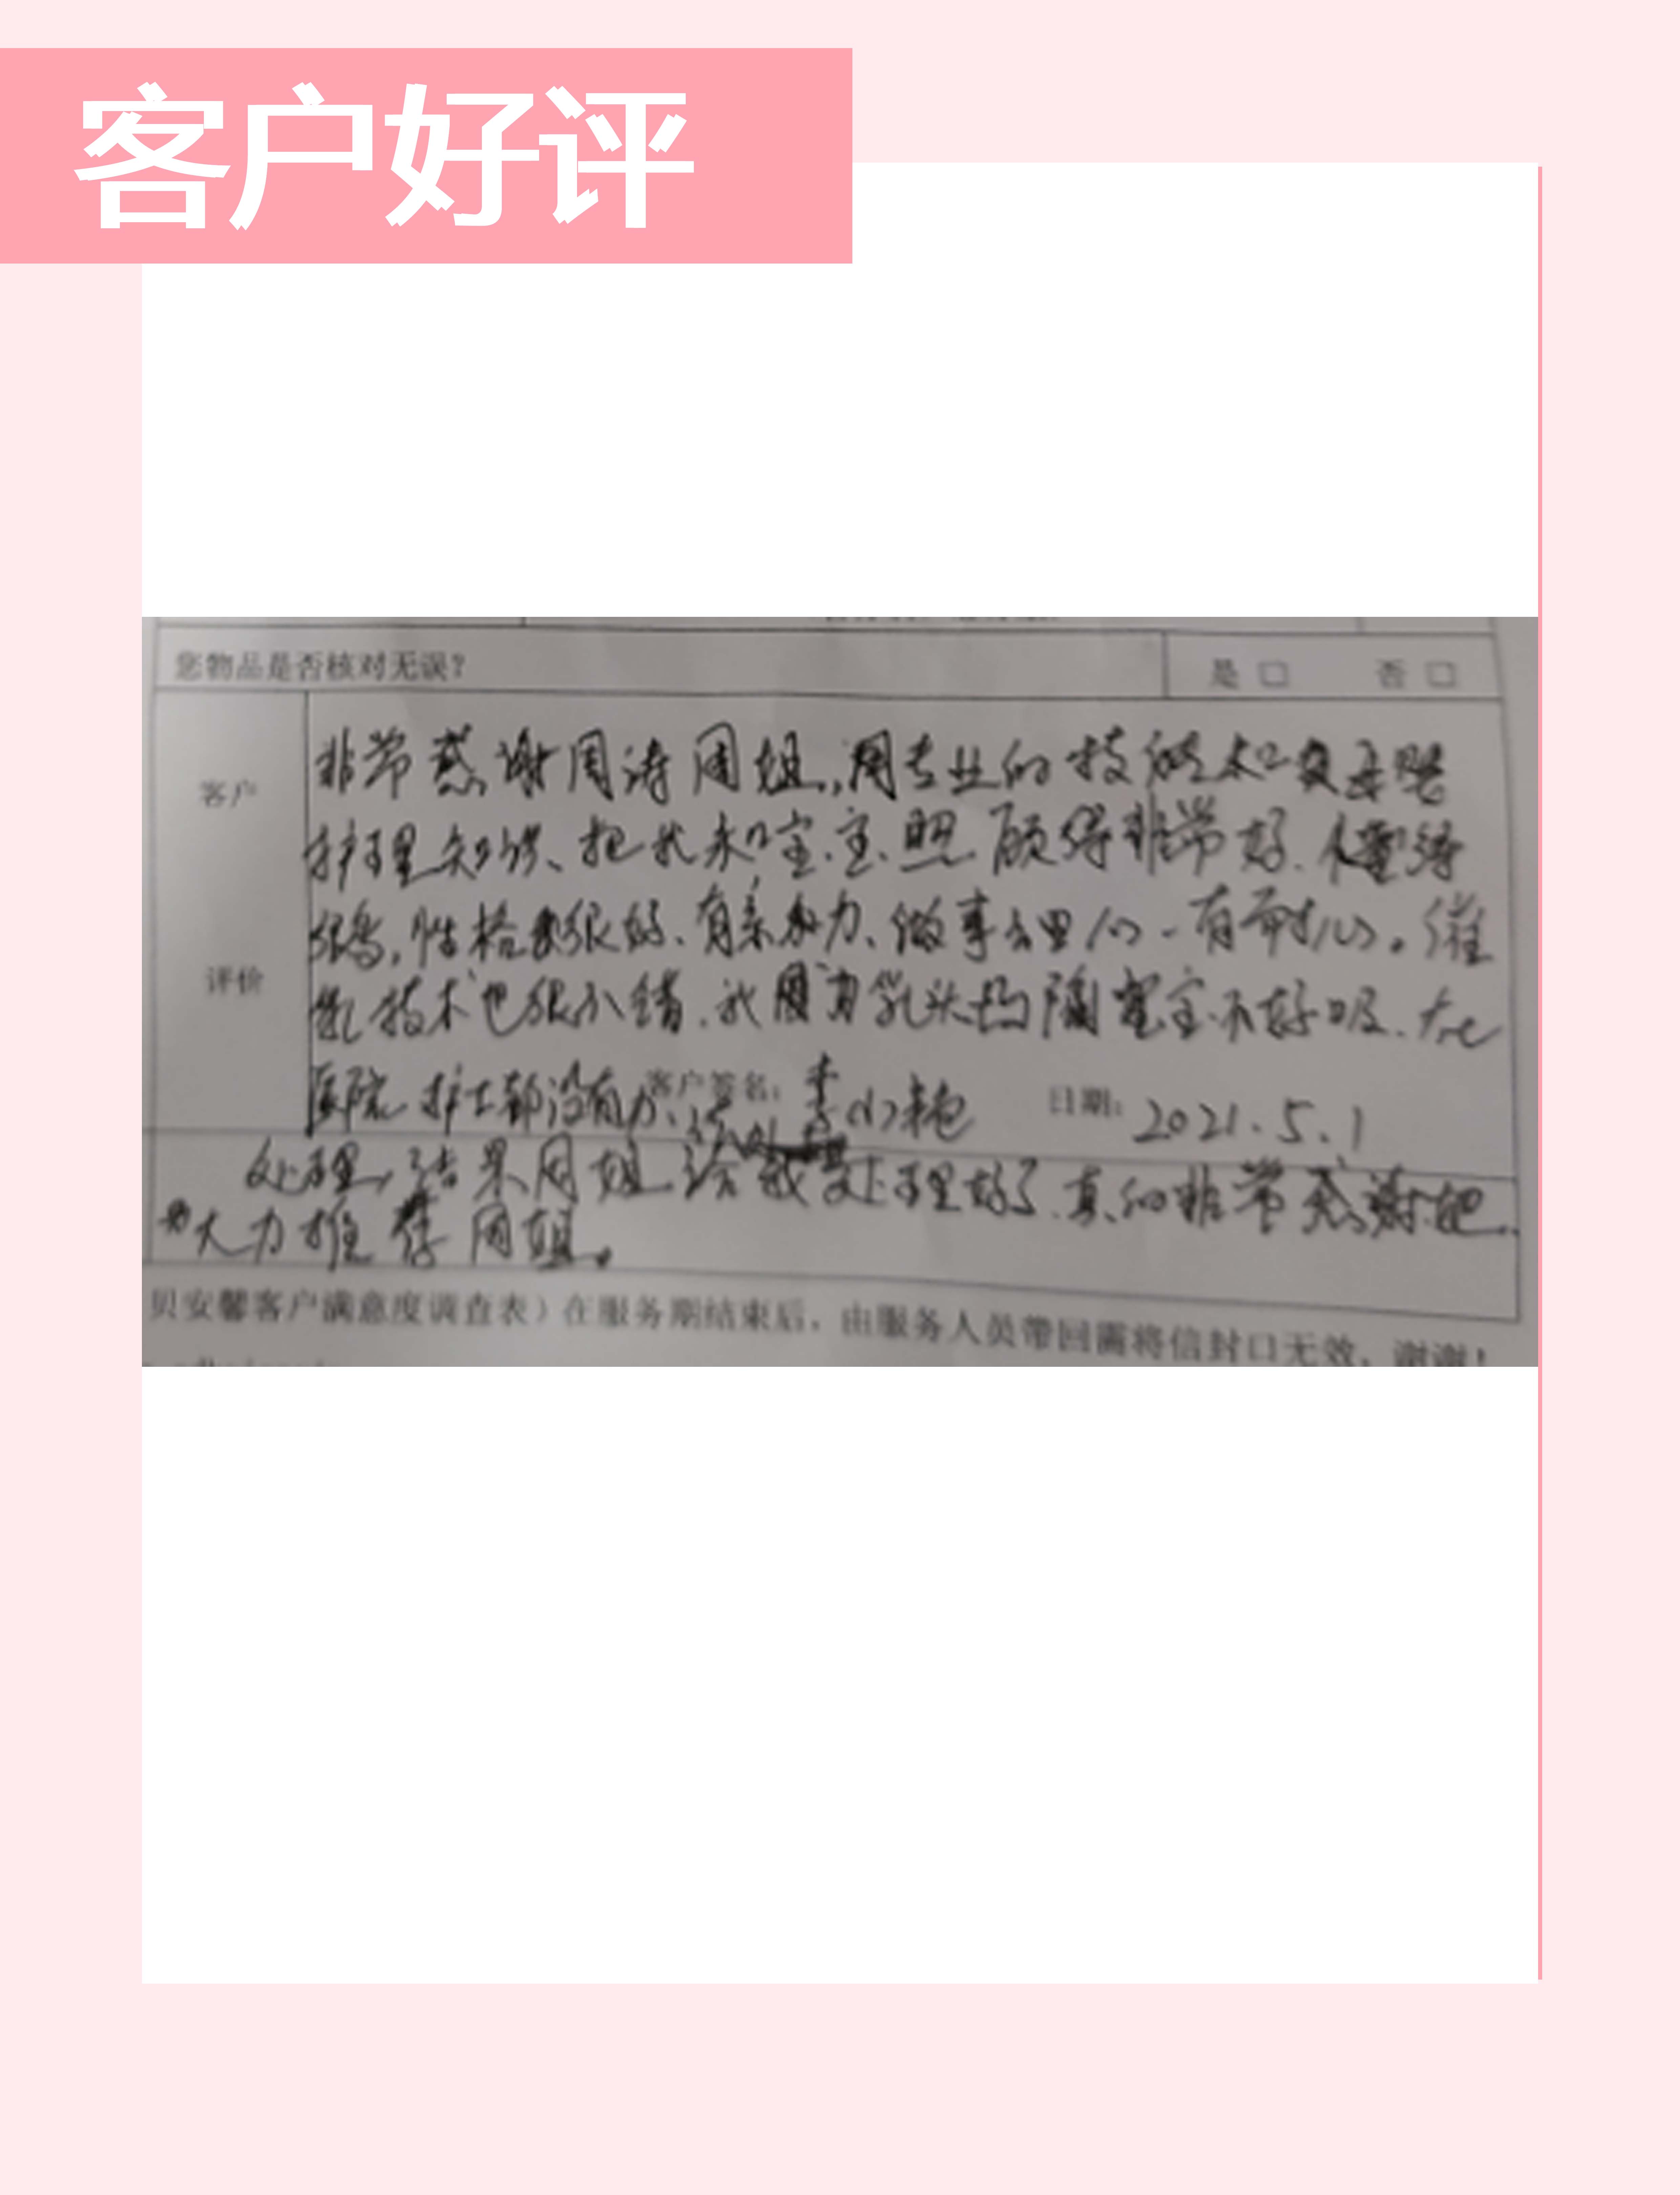 客户好评
您物品是否核对无误? 是 □ 否 □
客户
评价
非常感谢周涛周姐,用专业的技能和母婴
护理知识、把我和宝宝照顾得非常好.
很好,性格很好、有亲和力、做事细心、有耐心。催
乳技术也很不错.我因为乳头凹陷宝宝不好吸.
医院护士都没有办法
客户签名: 李小艳 日期: 2021.5.1
处理,结果周姐给我处理好了.真的非常感谢她.
大力推荐周姐。
贝安馨客户满意度调查表)在服务期结束后,由服务人员带回需将信封口无效,谢谢!